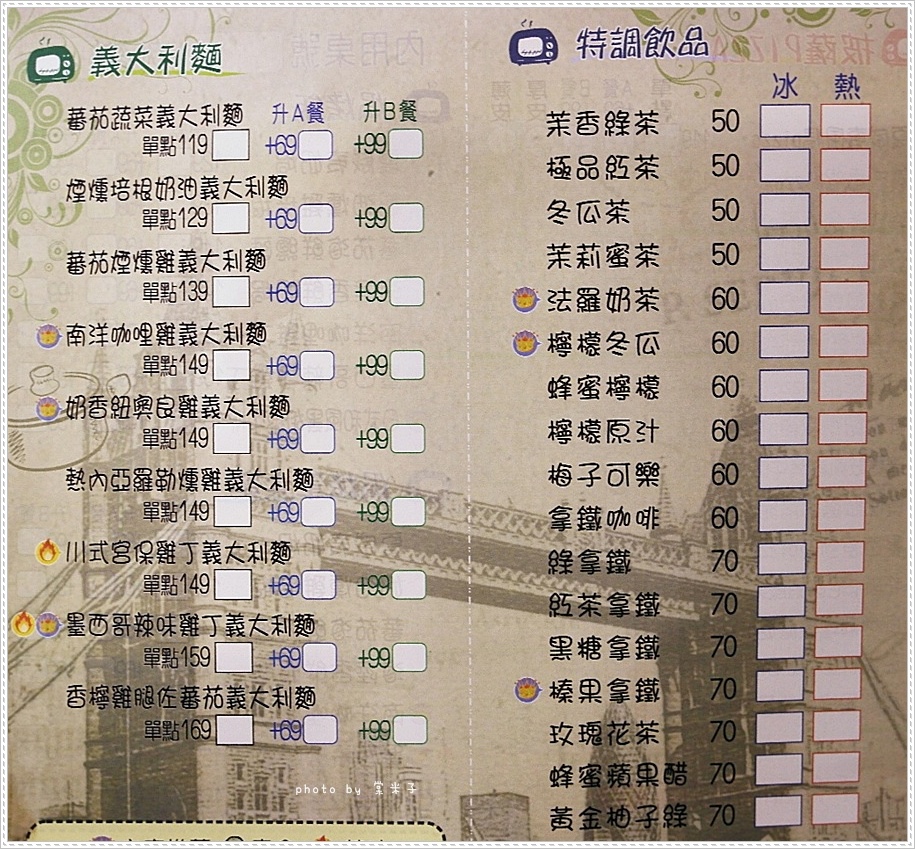 義大利麵
蕃茄蔬菜義大利麵 升A餐 升B餐
單點119 +69 +99
煙燻培根奶油義大利麵
單點129 +69 +99
蕃茄煙燻雞義大利麵
單點139 +69 +99
南洋咖哩雞義大利麵
單點149 +69 +99
奶香紐奧良雞義大利麵
單點149 +69 +99
熱內亞羅勒燻雞義大利麵
單點149 +69 +99
川式宮保雞丁義大利麵
單點149 +69 +99
墨西哥辣味雞丁義大利麵
單點159 +69 +99
香檸雞腿佐蕃茄義大利麵
單點169 +69 +99
特調飲品
冰 熱
茉香綠茶 50
極品紅茶 50
冬瓜茶 50
茉莉蜜茶 50
法羅奶茶 60
檸檬冬瓜 60
蜂蜜檸檬 60
檸檬原汁 60
梅子可樂 60
拿鐵咖啡 60
綠拿鐵 70
紅茶拿鐵 70
黑糖拿鐵 70
榛果拿鐵 70
玫瑰花茶 70
蜂蜜蘋果醋 70
黃金柚子綠 70
photo by 棠米子